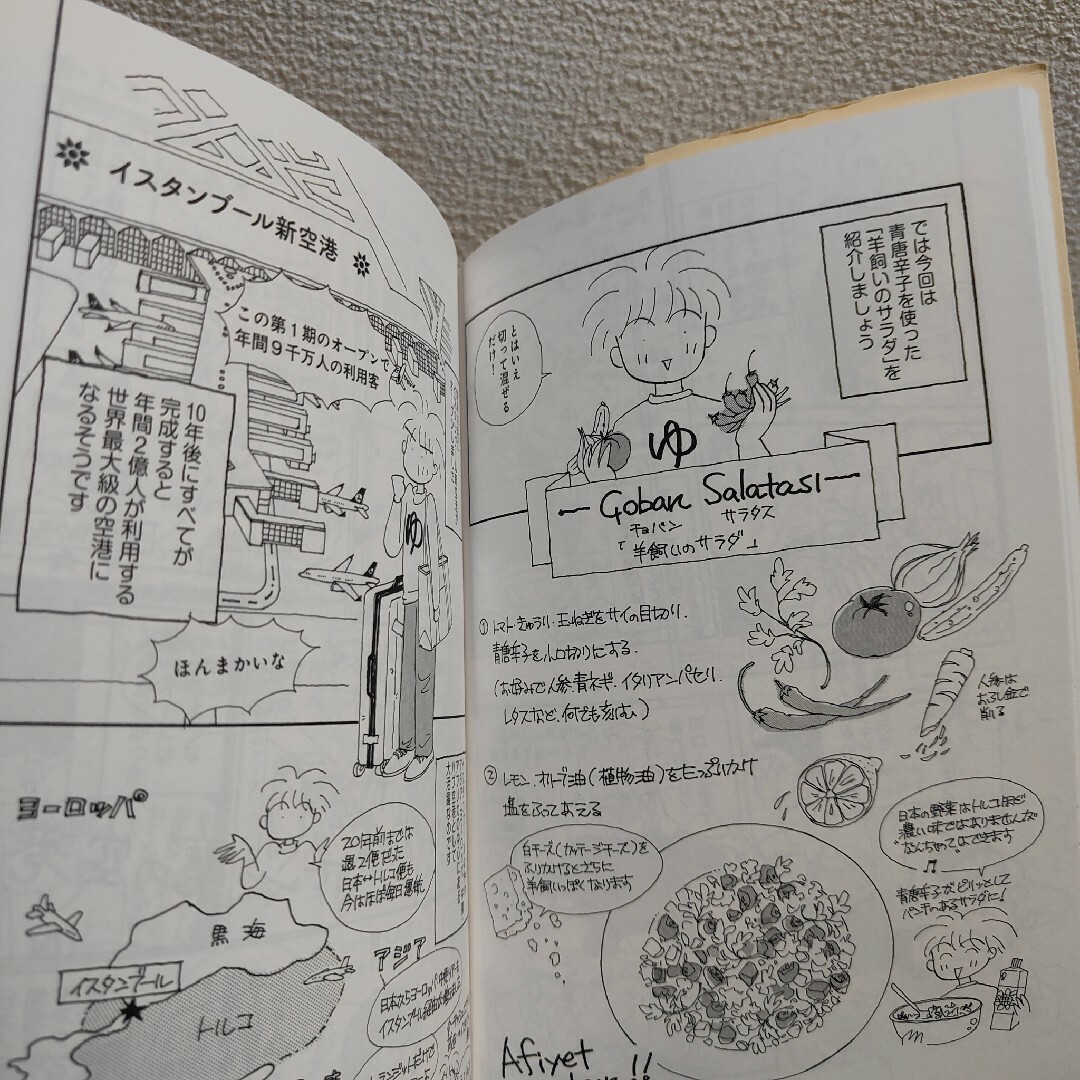 イスタンブール新空港
この第1期のオープンで
年間9千万人の利用客
10年後にすべてが
完成すると
年間2億人が利用する
世界最大級の空港に
なるそうです
ゆ
ほんまかいな
ヨーロッパ
20年前までは
週2便だった
日本↔トルコ便も
今はほぼ毎日運航
黒海
アジア
イスタンブール
トルコ
では今回は
青唐辛子を使った
「羊飼いのサラダ」を
紹介しましょう
とはいえ
切って混ぜる
だけ!
ゆ
Coban Salatası
チョバン サラタス
「羊飼いのサラダ」
① トマト・きゅうり・玉ねぎをサイの目切り.
青唐辛子を小口切りにする.
(お好みで人参.青ネギ.イタリアンパセリ.
レタスなど、何でも刻む)
人参は
おろし金で
削る
② レモン.オリーブ油(植物油)をたっぷりかけ
塩をふってあえる
白チーズ(カッテージチーズ)を
ふりかけるとさらに
羊飼いっぽくなります
日本の野菜はトルコほど
濃い味ではありませんが
"なんちゃって"はできます
青唐辛子がピリッとして
パンチのあるサラダに!
Afiyet